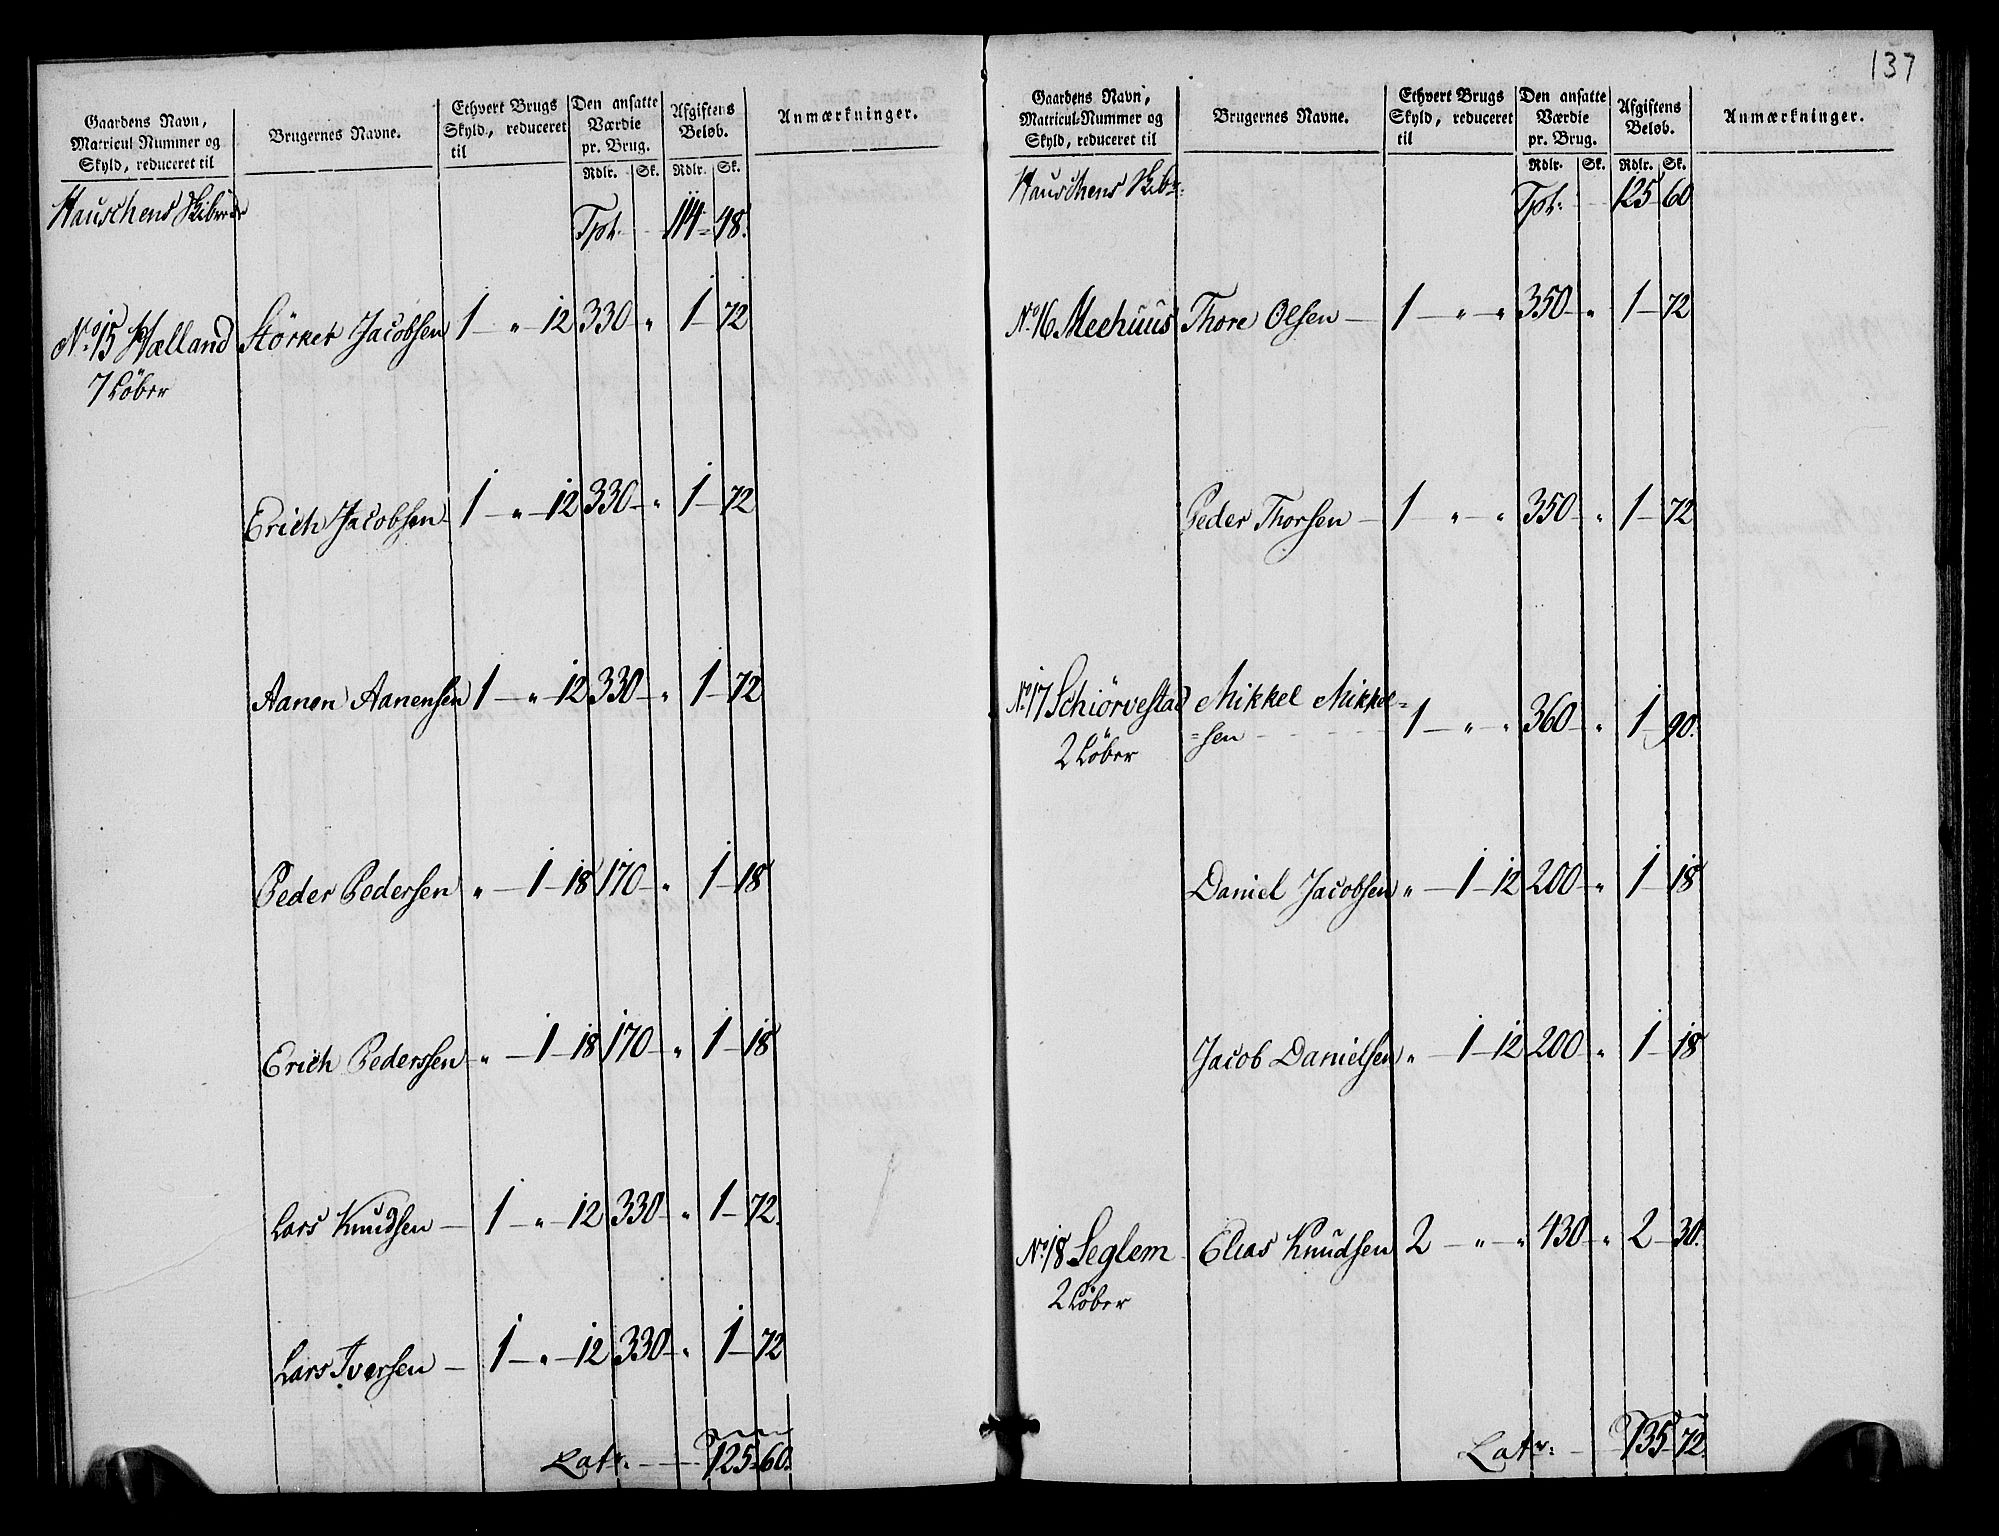 137
Gaardens Navn, Matricul Nummer og Skyld, reduceret til | Brugernes Navne. | Ethvert Brugs Skyld, reduceret til | Den ansatte Værdie pr. Brug. | Afgiftens Beløb. | Anmærkninger.
Rdlr. Sk. Rdlr. Sk.
Hauschens Skibrede
Tpt. 114 - 48.
No. 15 Hælland Störker Jacobsen 1 — " — 12 330 — " 1 — 72
7 Löber
Erich Jacobsen 1 — " — 12 330 — " 1 — 72
Aanen Aanensen 1 — " — 12 330 — " 1 — 72
Peder Pedersen " — 1 — 18 170 — " 1 — 18
Erich Pederssen " — 1 — 18 170 — " 1 — 18
Lars Knudsen — 1 — " — 12 330 — " 1 — 72.
Lars Iversen — 1 — " — 12 330 — " 1 — 72
Latr. — 125 - 60.
Gaardens Navn, Matricul-Nummer og Skyld, reduceret til | Brugernes Navne. | Ethvert Brugs Skyld, reduceret til | Den ansatte Værdie pr. Brug. | Afgiftens Beløb. | Anmærkninger.
Rdlr. Sk. Rdlr. Sk.
Hauschens Skibr:
Tpt. 125 - 60
No. 16 Meehuus Thore Olsen — 1 — " — " 350 — " 1 — 72
Peder Thorsen — 1 — " — " 350 — " 1 — 72
No. 17 Schiörvestad Mikkel Mikkel=
=sen 1 — " — " 360 — " 1 — 90.
2 Löber
Daniel Jacobsen " — 1 — 12 200 — " 1 — 18
Jacob Danielsen " — 1 — 12 200 — " 1 — 18
No. 18 Seglem Elias Knudsen 2 — " — " 430 — " 2 — 30.
2 Löber
Latr: — 135 - 72.